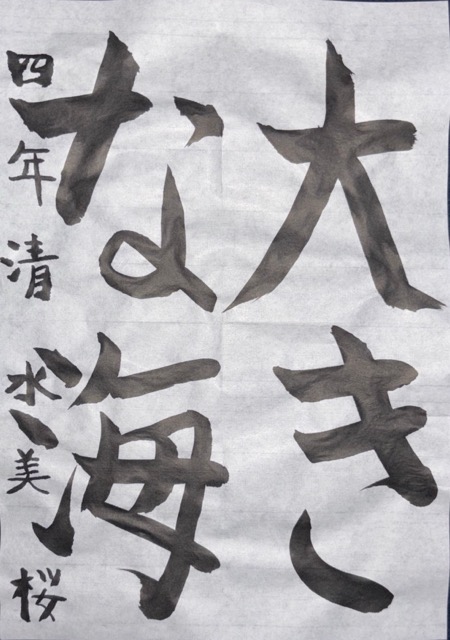 大き
な海
四年 清水美桜